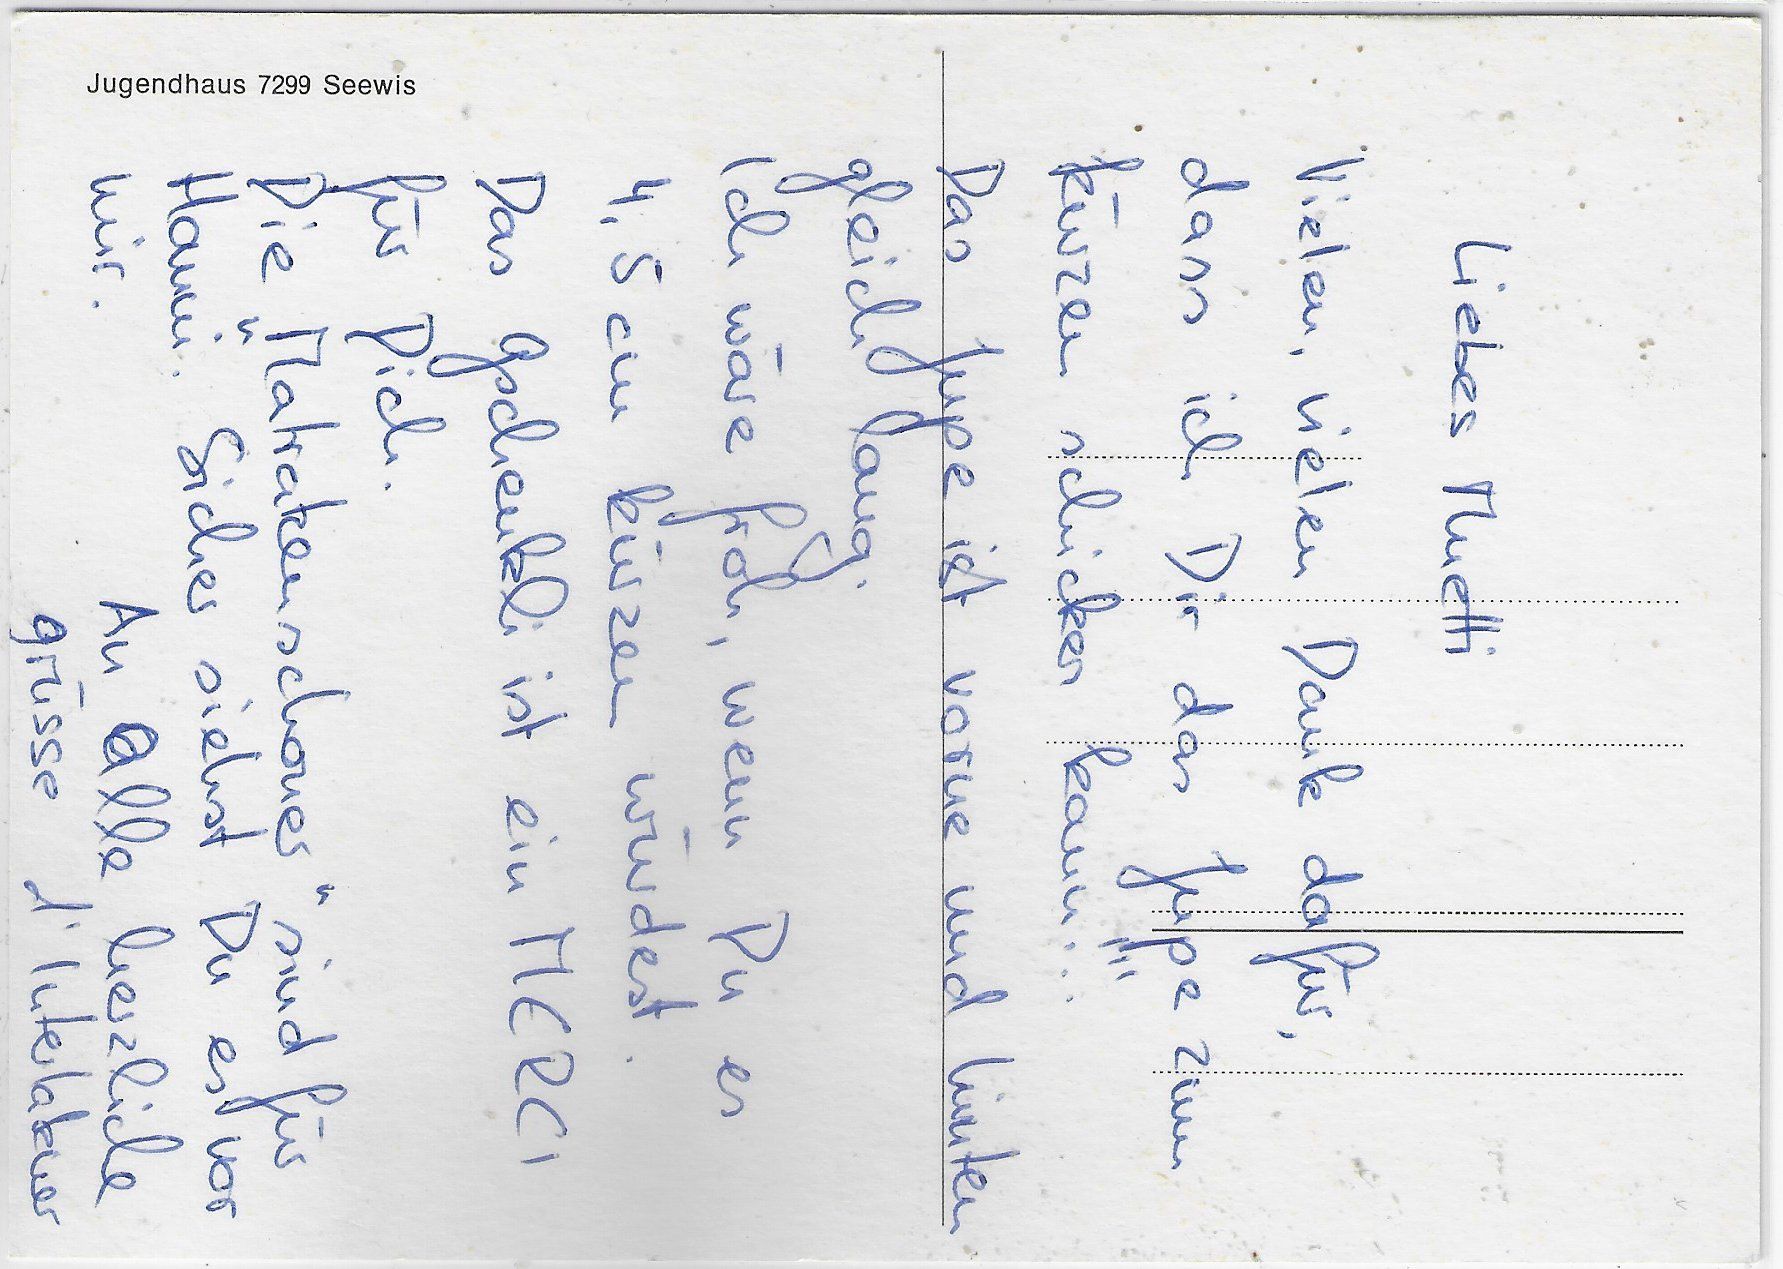 Jugendhaus 7299 Seewis
Liebes Muetti
Vielen, vielen Dank dafür,
dass ich Dir das Jupe zum
kürzen schicken kann!!!
Das Jupe ist vorne und hinten
gleich lang.
Ich wäre froh, wenn Du es
4,5 cm kürzen würdest.
Das Gschenkli ist ein MERCI
für Dich.
Die "Matratzenschoner" sind für
Hanni. Sicher siehst Du es vor
mir.
An alle herzliche
grüsse d'Interlakner